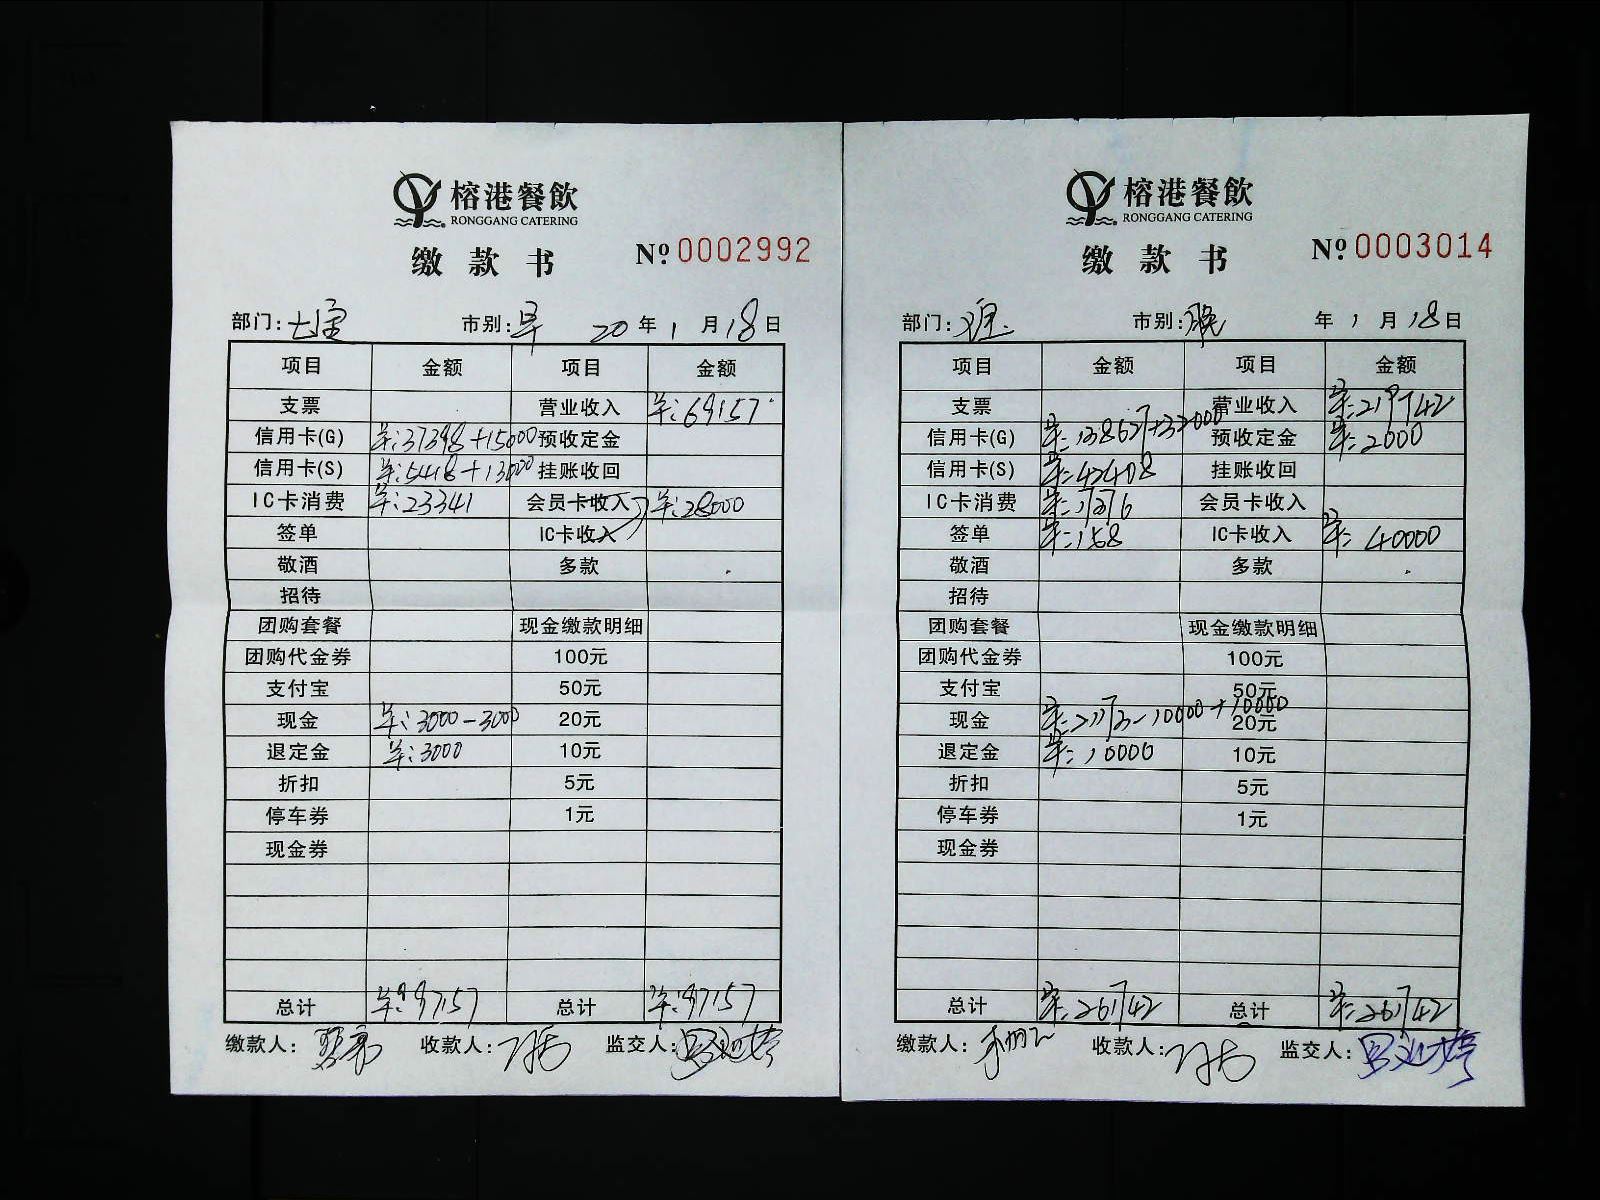 榕港餐飲
RONGGANG CATERING
缴款书 №0002992
部门: 市别:早 20年1月18日
项目 金额 项目 金额
支票 营业收入 69157
信用卡(G) 37398+15000 预收定金
信用卡(S) 5418+13000 挂账收回
IC卡消费 23341 会员卡收入 28000
签单 IC卡收入
敬酒 多款
招待
团购套餐 现金缴款明细
团购代金券 100元
支付宝 50元
现金 3000-3000 20元
退定金 3000 10元
折扣 5元
停车券 1元
现金券
总计 97157 总计 97157
缴款人: 收款人: 监交人:
榕港餐飲
RONGGANG CATERING
缴款书 №0003014
部门: 市别:晚 年1月18日
项目 金额 项目 金额
支票 营业收入 219742
信用卡(G) 138627+32000 预收定金 2000
信用卡(S) 42408 挂账收回
IC卡消费 会员卡收入
签单 158 IC卡收入 40000
敬酒 多款
招待
团购套餐 现金缴款明细
团购代金券 100元
支付宝 50元
现金 -10000+10000 20元
退定金 10000 10元
折扣 5元
停车券 1元
现金券
总计 261742 总计 261742
缴款人: 收款人: 监交人: